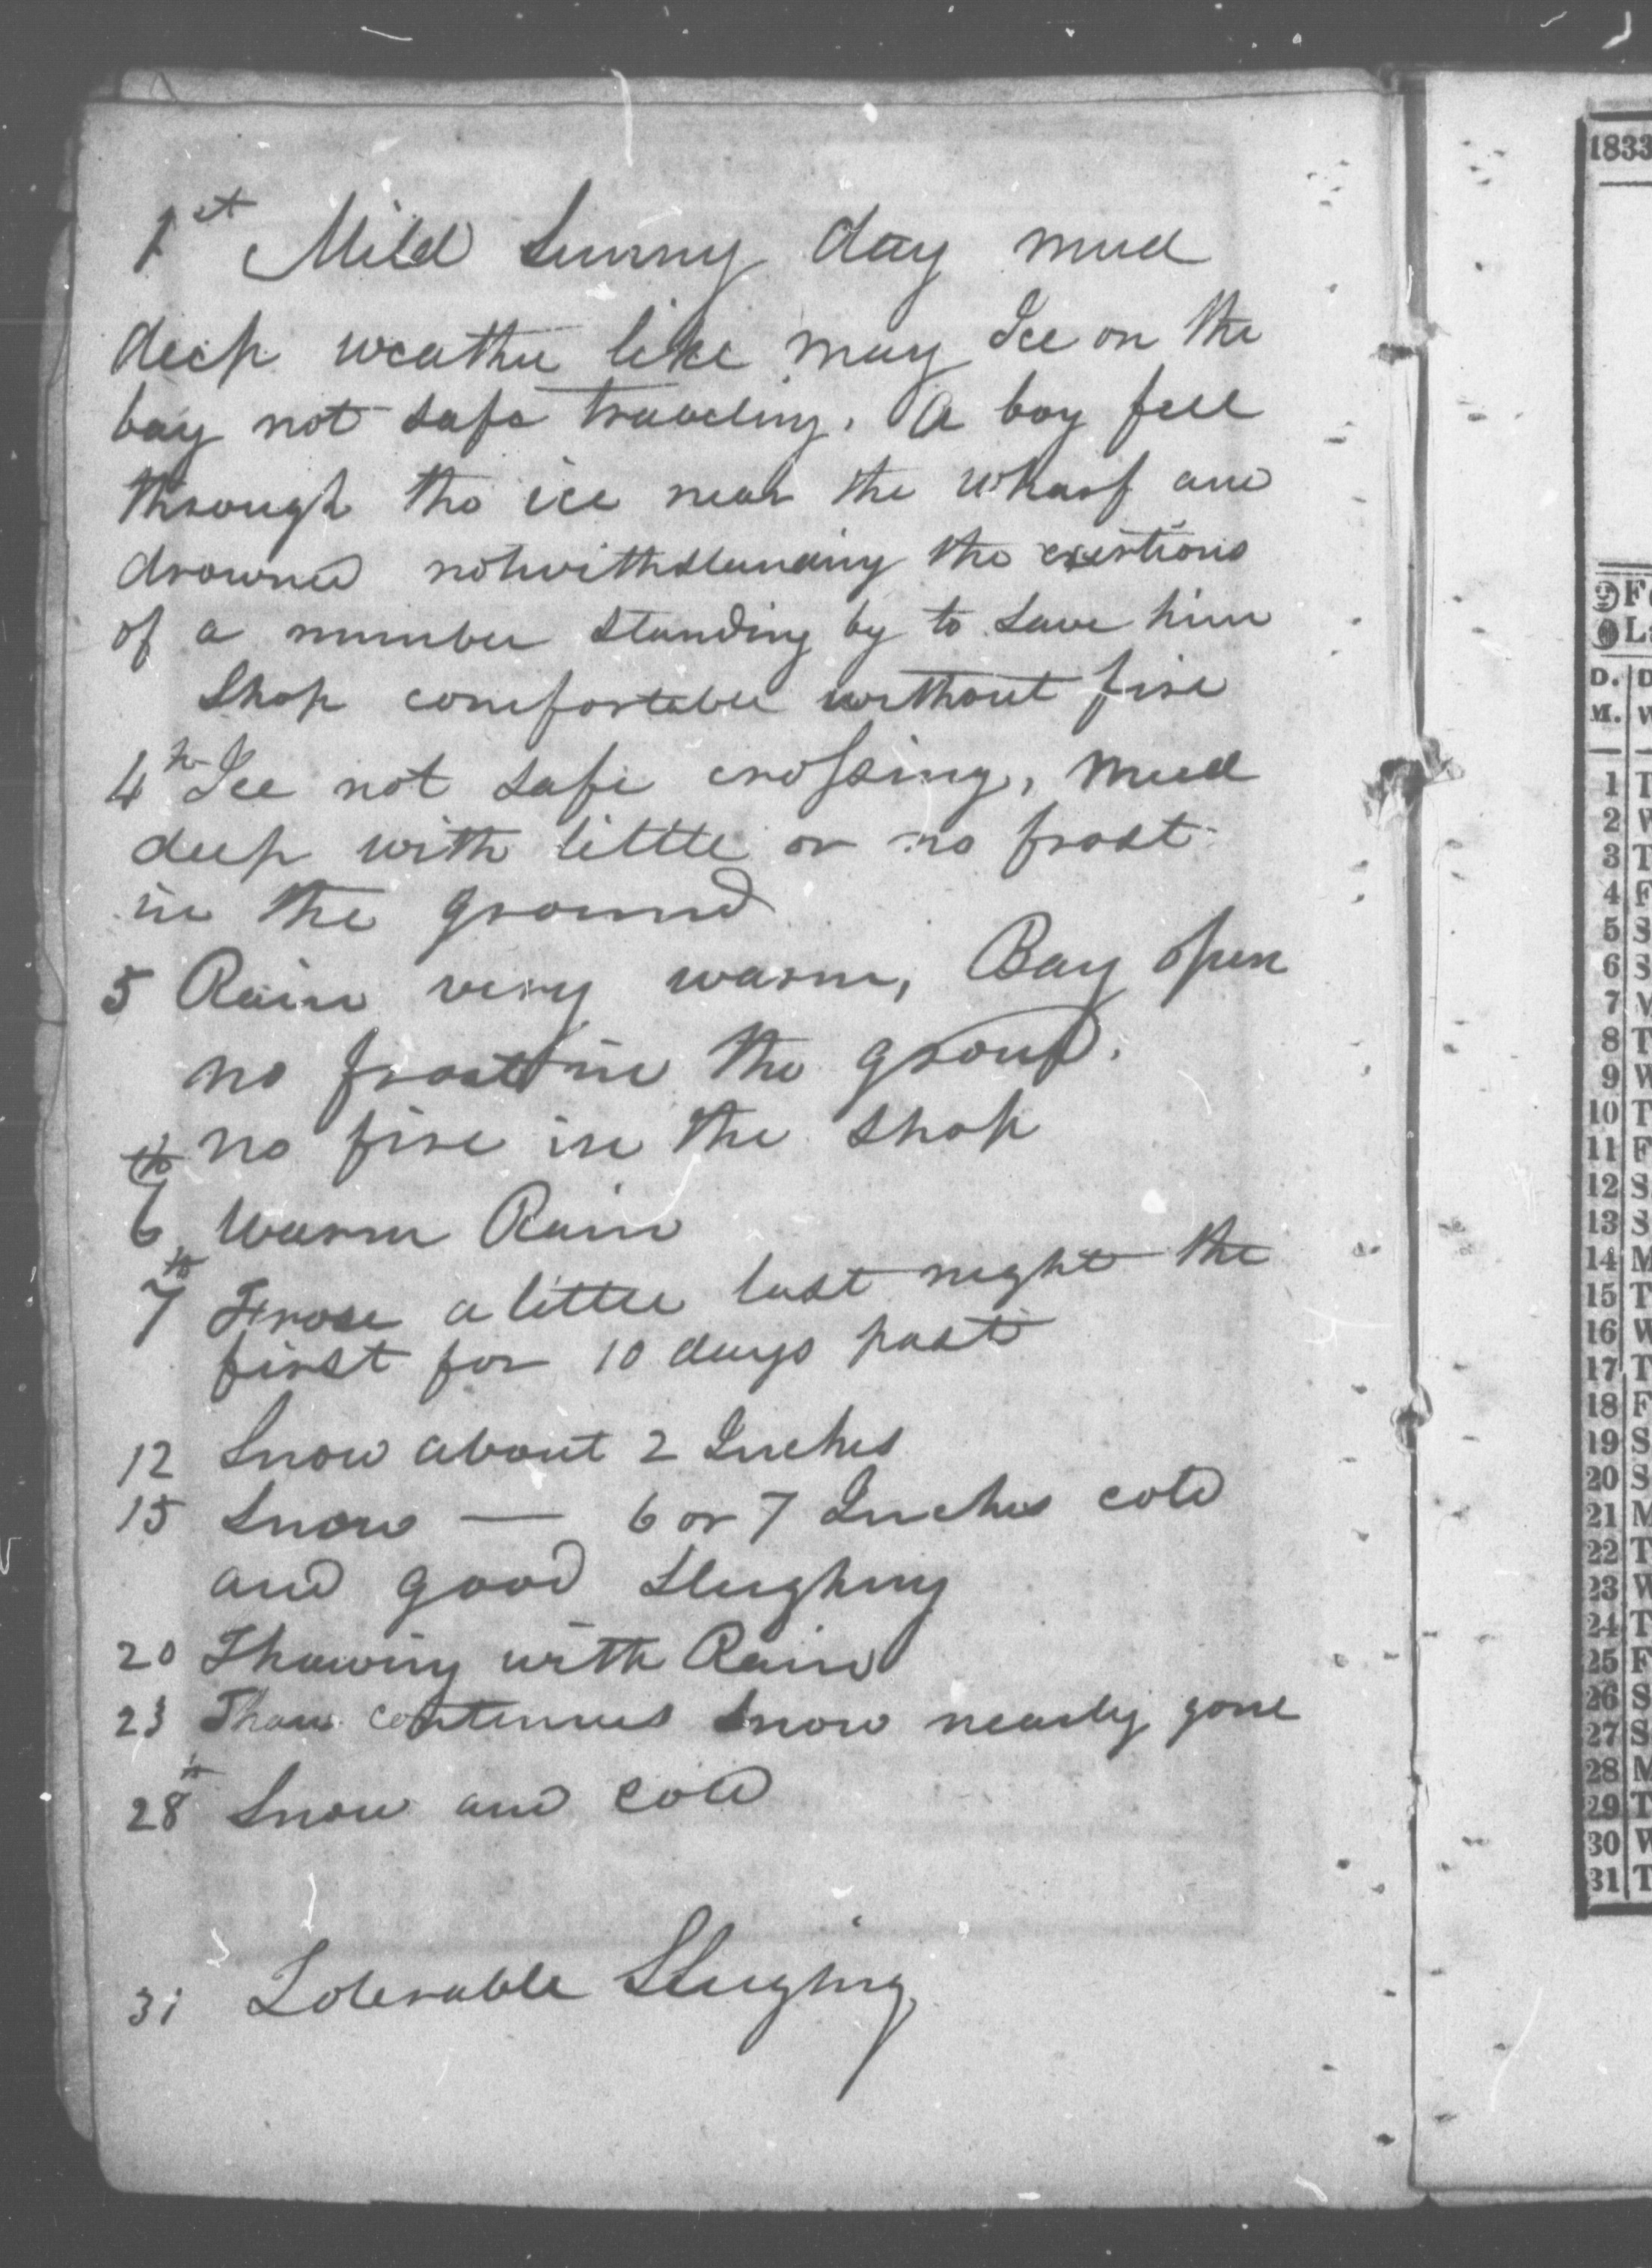 1st Mild Sunny day mud
deep weather like may Ice on the
bay not safe traveling. A boy fell
through the ice near the Wharf and
drowned notwithstanding the exertions
of a number standing by to save him
Shop comfortable without fire
4th Ice not safe crossing, Mud
deep with little or no frost
in the ground
5 Rain very warm, Bay open
no frost in the
no fire in the shop
th
6 Warm Rain
7th Froze a little last night the
first for 10 days past
12 Snow about 2 Inches
15 Snow — 6 or 7 Inches cold
and good Sleighing
20 Thawing with Rain
23 Thaw continues Snow nearly gone
28th Snow and cold
31 Tolerable Sleighing
1833
D. D
M. W
1 T
2 W
3 T
4 F
5 S
6 S
7 M
8 T
9 W
10 T
11 F
12 S
13 S
14 M
15 T
16 W
17 T
18 F
19 S
20 S
21 M
22 T
23 W
24 T
25 F
26 S
27 S
28 M
29 T
30 W
31 T